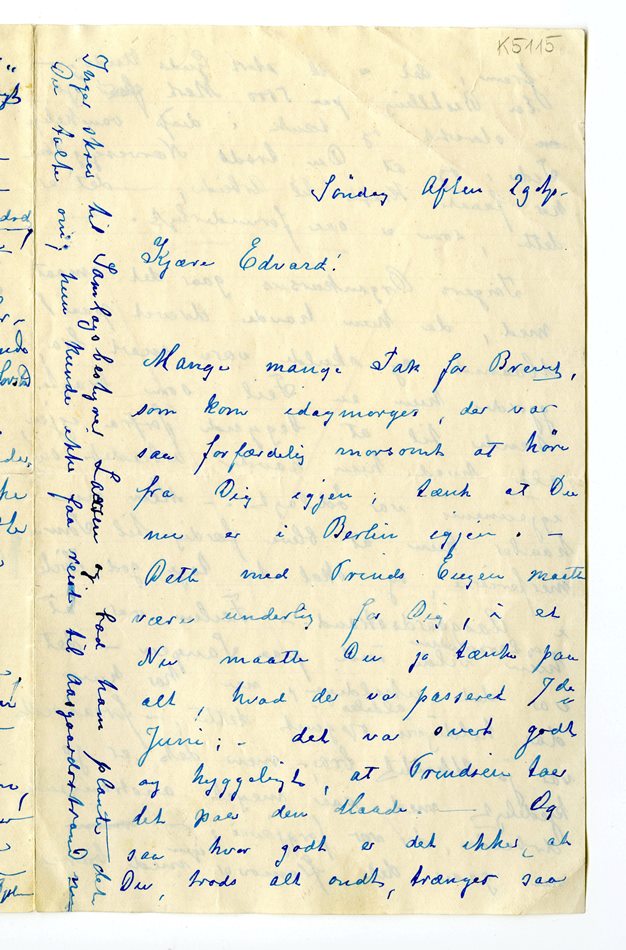 K5115
Søndag Aften 29de
Kjære Edvard!
Mange mange Tak for Brevet,
som kom idagmorges, der var
saa forfærdelig morsomt at høre
fra Dig igjen; tænk at Du
nu er i Berlin igjen. –
Dette med Prinds Eugen maatte
være underlig for Dig, i et
Nu maatte Du jo tænke paa
alt, hvad der va passeret 7de
Juni; – det va svert godt
og hyggeligt, at Prindsen tar
det paa den Maade. — Og
saa hvor godt er det ikke, at
Du, trods alt ondt, trænger saa
Inger skrev til Samlagsbestyrer Laasen og bad ham plante det
Du talte om; hun kunde ikke faa reist til Aasgaardstrand nu